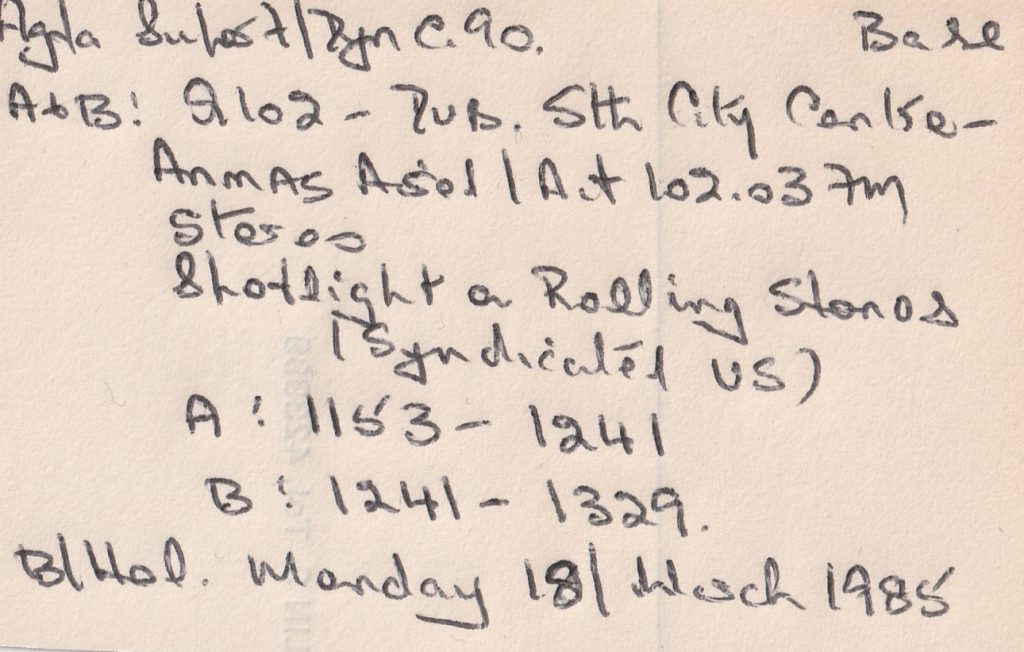 Agfa Super/Dyn C.90. Base
A+B: Q102 - Dub. Sth City Centre -
102.037m
Stereo
Spotlight on Rolling Stones
(Syndicated US)
A: 1153 - 1241
B: 1241 - 1329.
B/Hol. Monday 18/March 1985